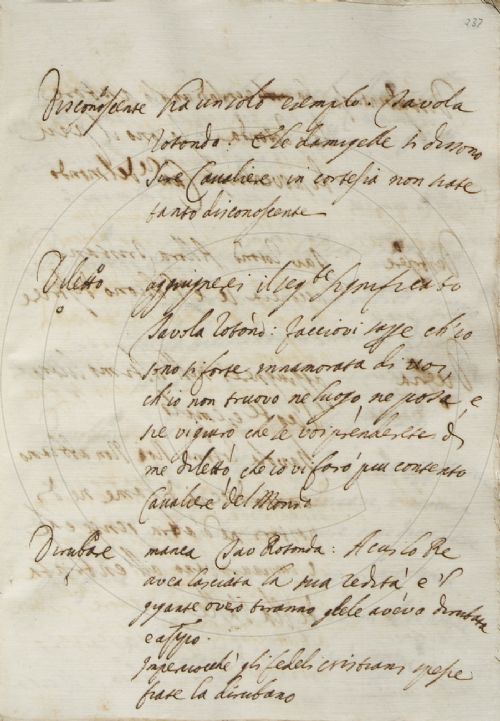 237
Disconoscente ha un solo esemplo. Tavola
ritonda: E le damigelle li dissono
Sire Cavaliere in cortesia non siate
tanto disconoscente
Diletto aggiugnesi il seg.te significato
Tavola ritond: facciovi sapere ch'io
sono sì forte innamorata di voi
ch'io non truovo ne luogo ne posa e
se vi giuro che se voi prenderete di
me diletto ch'io vi farò più contento
Cavaliere del Mondo
Dirubare manca Tav Rotonda: A cui lo Re
avea lasciata la sua redità e il
gigante overo tiranno glele avevo dirubata
e
Imperciocchè gli fedeli cristiani spesse
fiate la dirubano